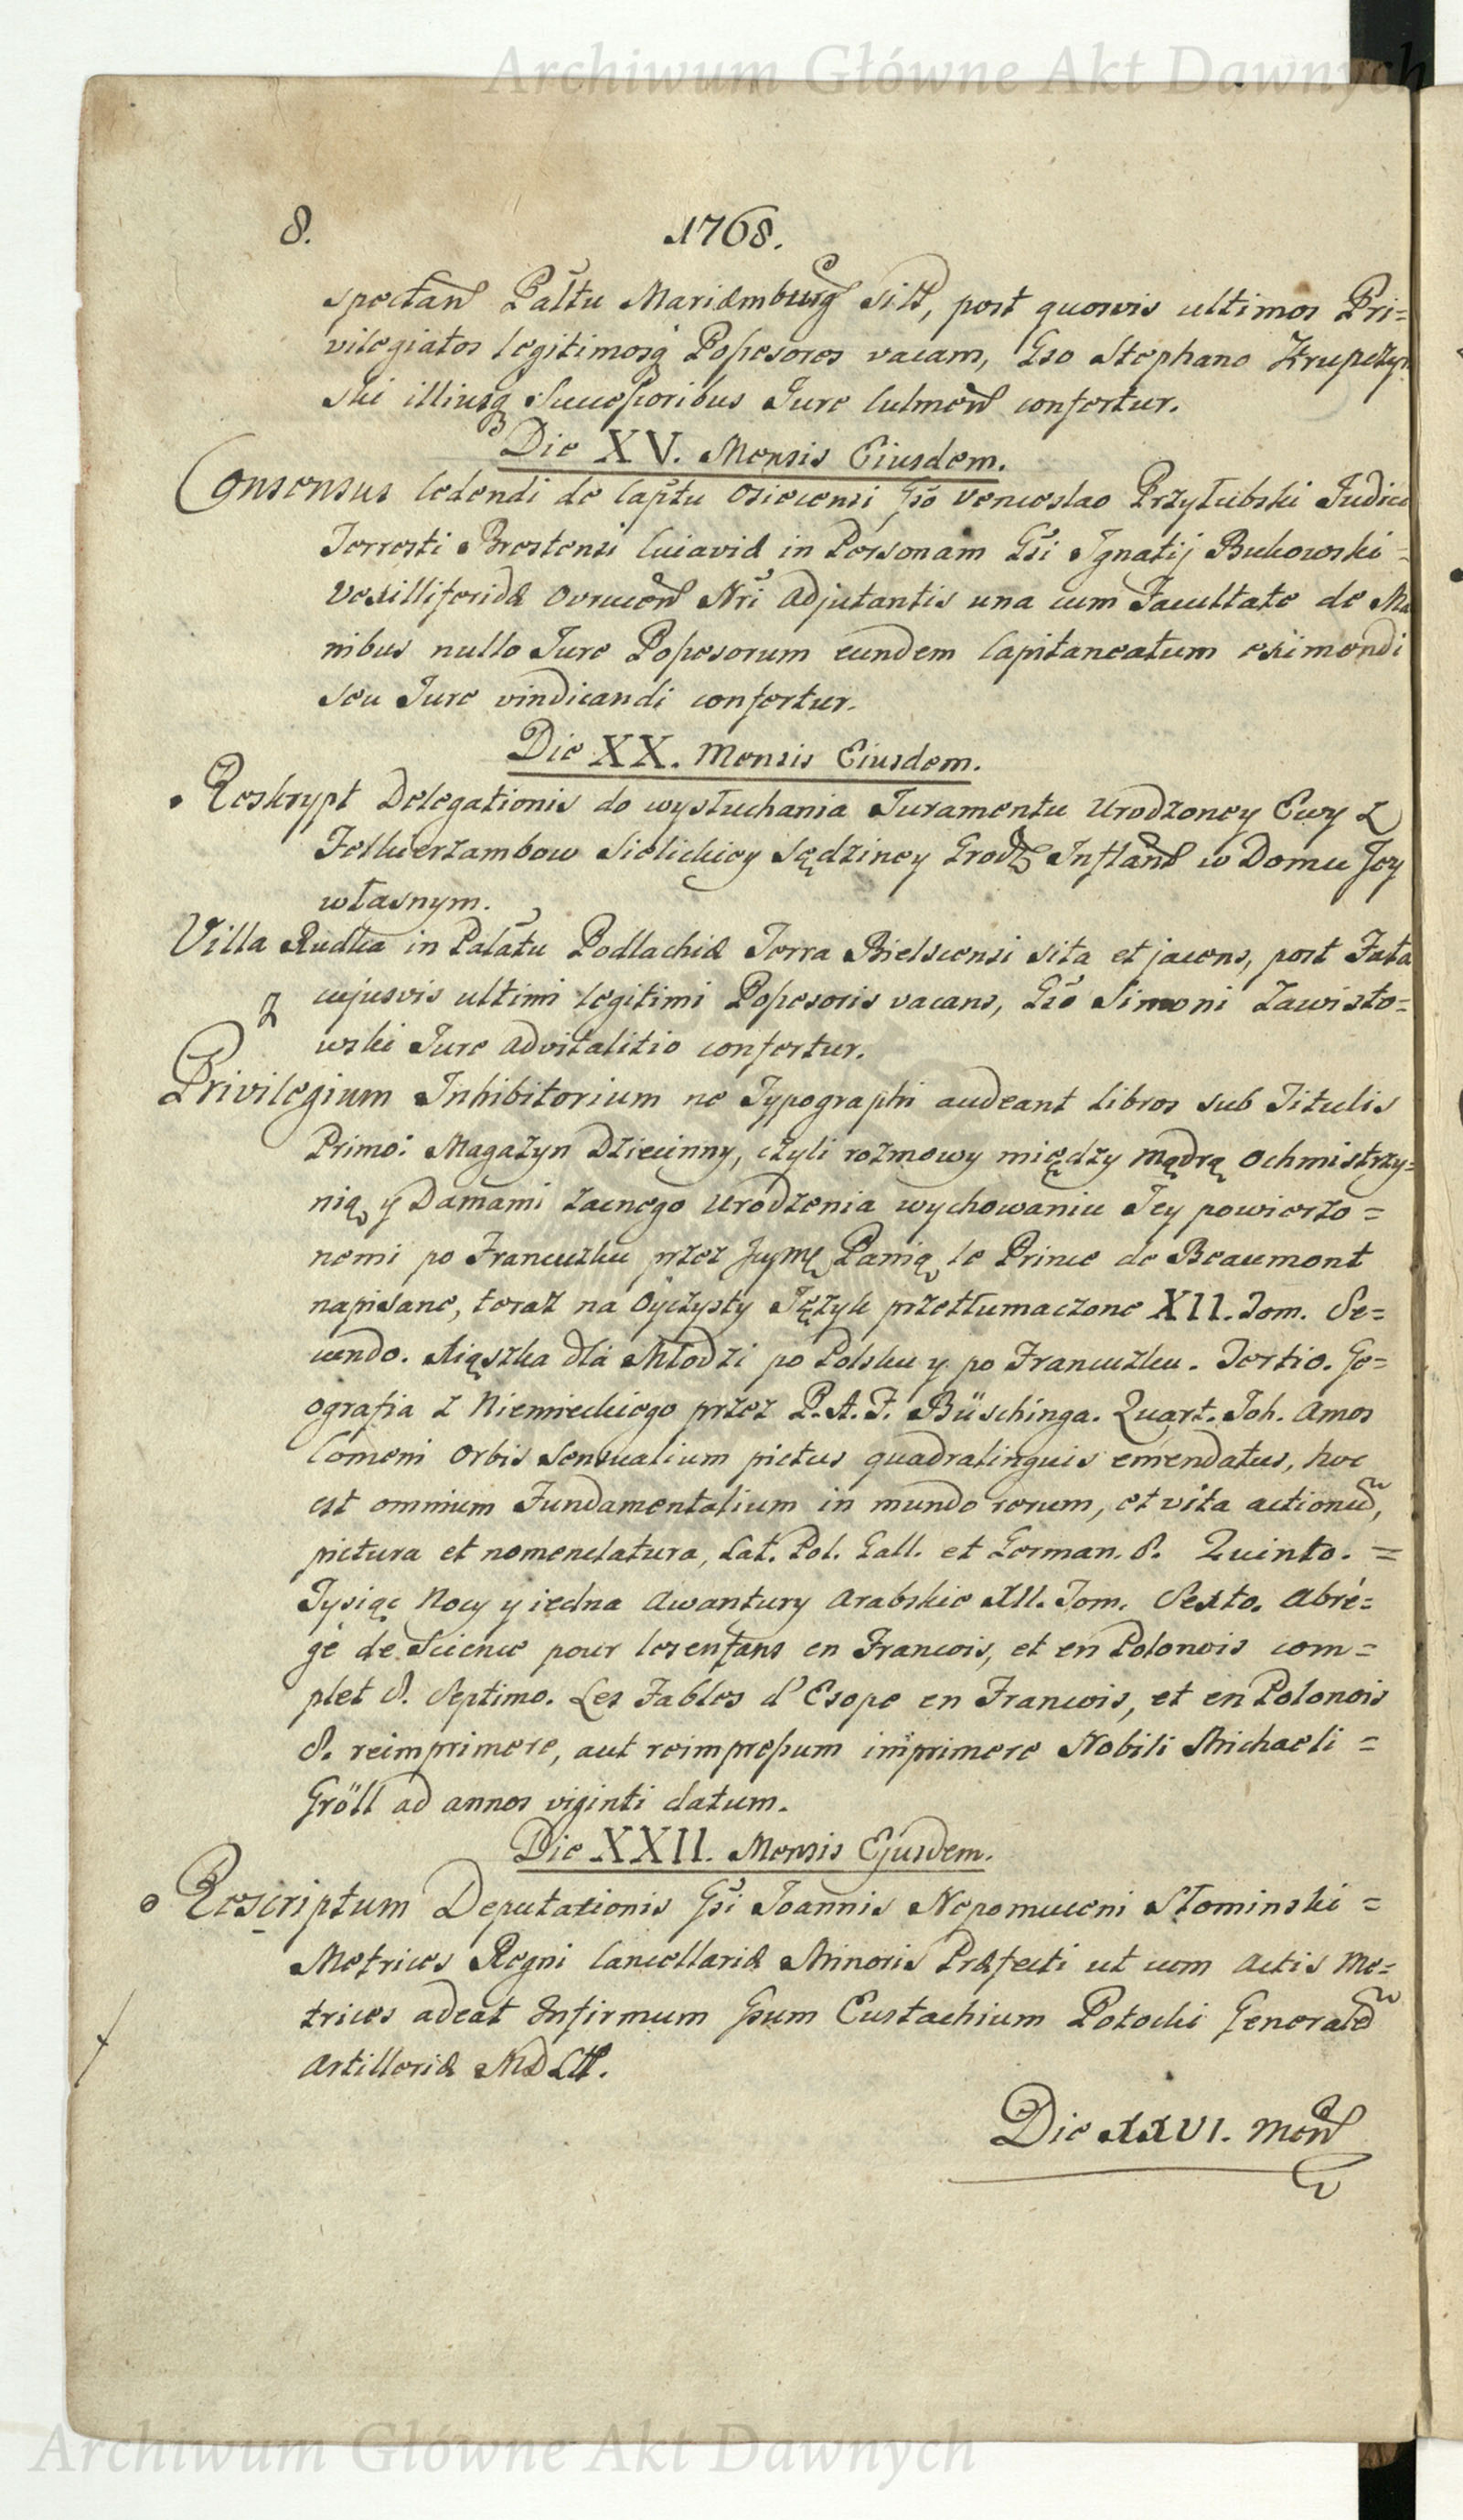 Archiwum Główne Akt Dawnych
8. 1768.
spectan Palt̃u Mariæmburg sit, post quosvis ultimos Pri=
vilegiatos legitimosq Possesores vacam, Gso Stephano Krupczyn
ski illiusq Successoribus Jure Culmen confertur.
Die XV. Mensis Eiusdem.
Consensus Cedendi de Captu Osiecensi Gso Venceslao Przyłubski Judici
Terrestri Brestensi Cuiaviæ in Personam Gsi Ignatij Bukowski =
Vexilliferidæ Ovrucen Nri Adjutantis una cum Facultate de Ma
nibus nullo Jure Possesorum eundem Capitaneatum eximendi
seu Jure vindicandi confertur.
Die XX. Mensis Eiusdem.
Reskrypt Delegationis do wysłuchania Juramentu Urodzoney Ewy z
Felkierzambow Sielickiey Sędziney Grodz Inflan w Domu Jey
własnym.
Villa Rudka in Palatu Podlachiæ Terra Bielscensi sita et jacens, post Fata
cujusvis ultimi legitimi Possesoris vacans, Gso Simoni Zawisto=
wski Jure advitalitio confertur.
Privilegium Inhibitorium ne Typographi audeant Libros sub Titulis
Primo: Magazyn Dziecinny, czyli rozmowy między mądrą Ochmistrzy=
nią y Damami zacnego Urodzenia wychowaniu Jey powierzo=
nemi po Francuzku przez Jeymę Panią le Prince de Beaumont
napisane, teraz na Oyczysty Język przetłumaczone XII. Tom. Se=
cundo. Xiąszka dla Młodzi po Polsku y po Francuzku. Tertio. Ge=
ografia z Niemieckiego przez P. A. F. Büschinga. Quart. Joh. Amos
Comeni Orbis Sensualium pictus quadralinguis emendatus, hoc
est omnium Fundamentalium in mundo rerum, et vita actionu,
pictura et nomenclatura, Lat. Pol. Gall. et German. 8. Quinto. =
Tysiąc Nocy y iedna Awantury Arabskie XII. Tom. Sexto. Abré=
gé de Science pour les enfans en Francois, et en Polonois com=
plet 8. Septimo. Les Fables d'Esope en Francois, et en Polonois
8. reimprimere, aut reimpressum imprimere Nobili Michaeli =
Gröll ad annos viginti datum.
Die XXII. Mensis Ejusdem.
Rescriptum Deputationis Gsi Joannis Nepomuceni Słominski =
Metrices Regni Cancellariæ Minoris Præfecti ut cum Actis Me=
trices adeat Infirmum Gsum Eustachium Potocki Generale
Artilleriæ MD Ltt.
Die XXVI. Men
Archiwum Główne Akt Dawnych